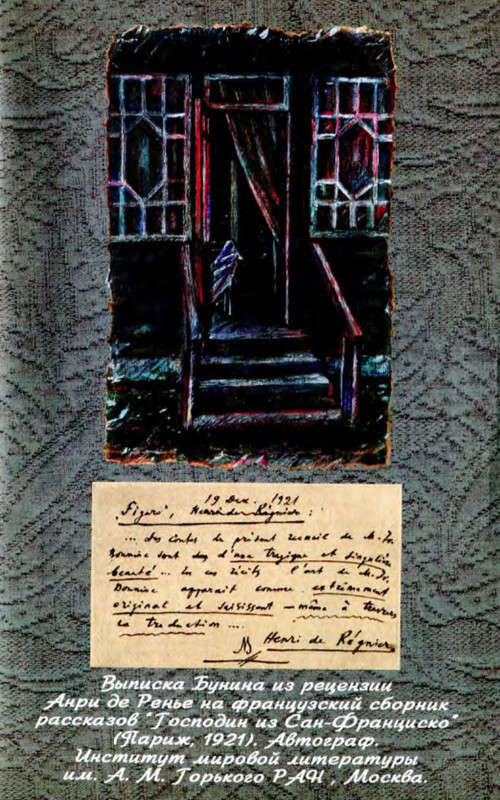 19 Dec. 1921
"Figaro", Henri de Régnier :
... des contes du présent recueil de M. Iv.
Bounine sont d'une tragique et singulière
beauté ... en ces récits l'art de M. Iv.
Bounine apparait comme extrêmement
original et saisissant – même à travers
la traduction ....
Henri de Régnier
Выписка Бунина из рецензии
Анри де Ренье на французский сборник
рассказов "Господин из Сан-Франциско"
(Париж, 1921). Автограф.
Институт мировой литературы
им. А. М. Горького РАН , Москва.